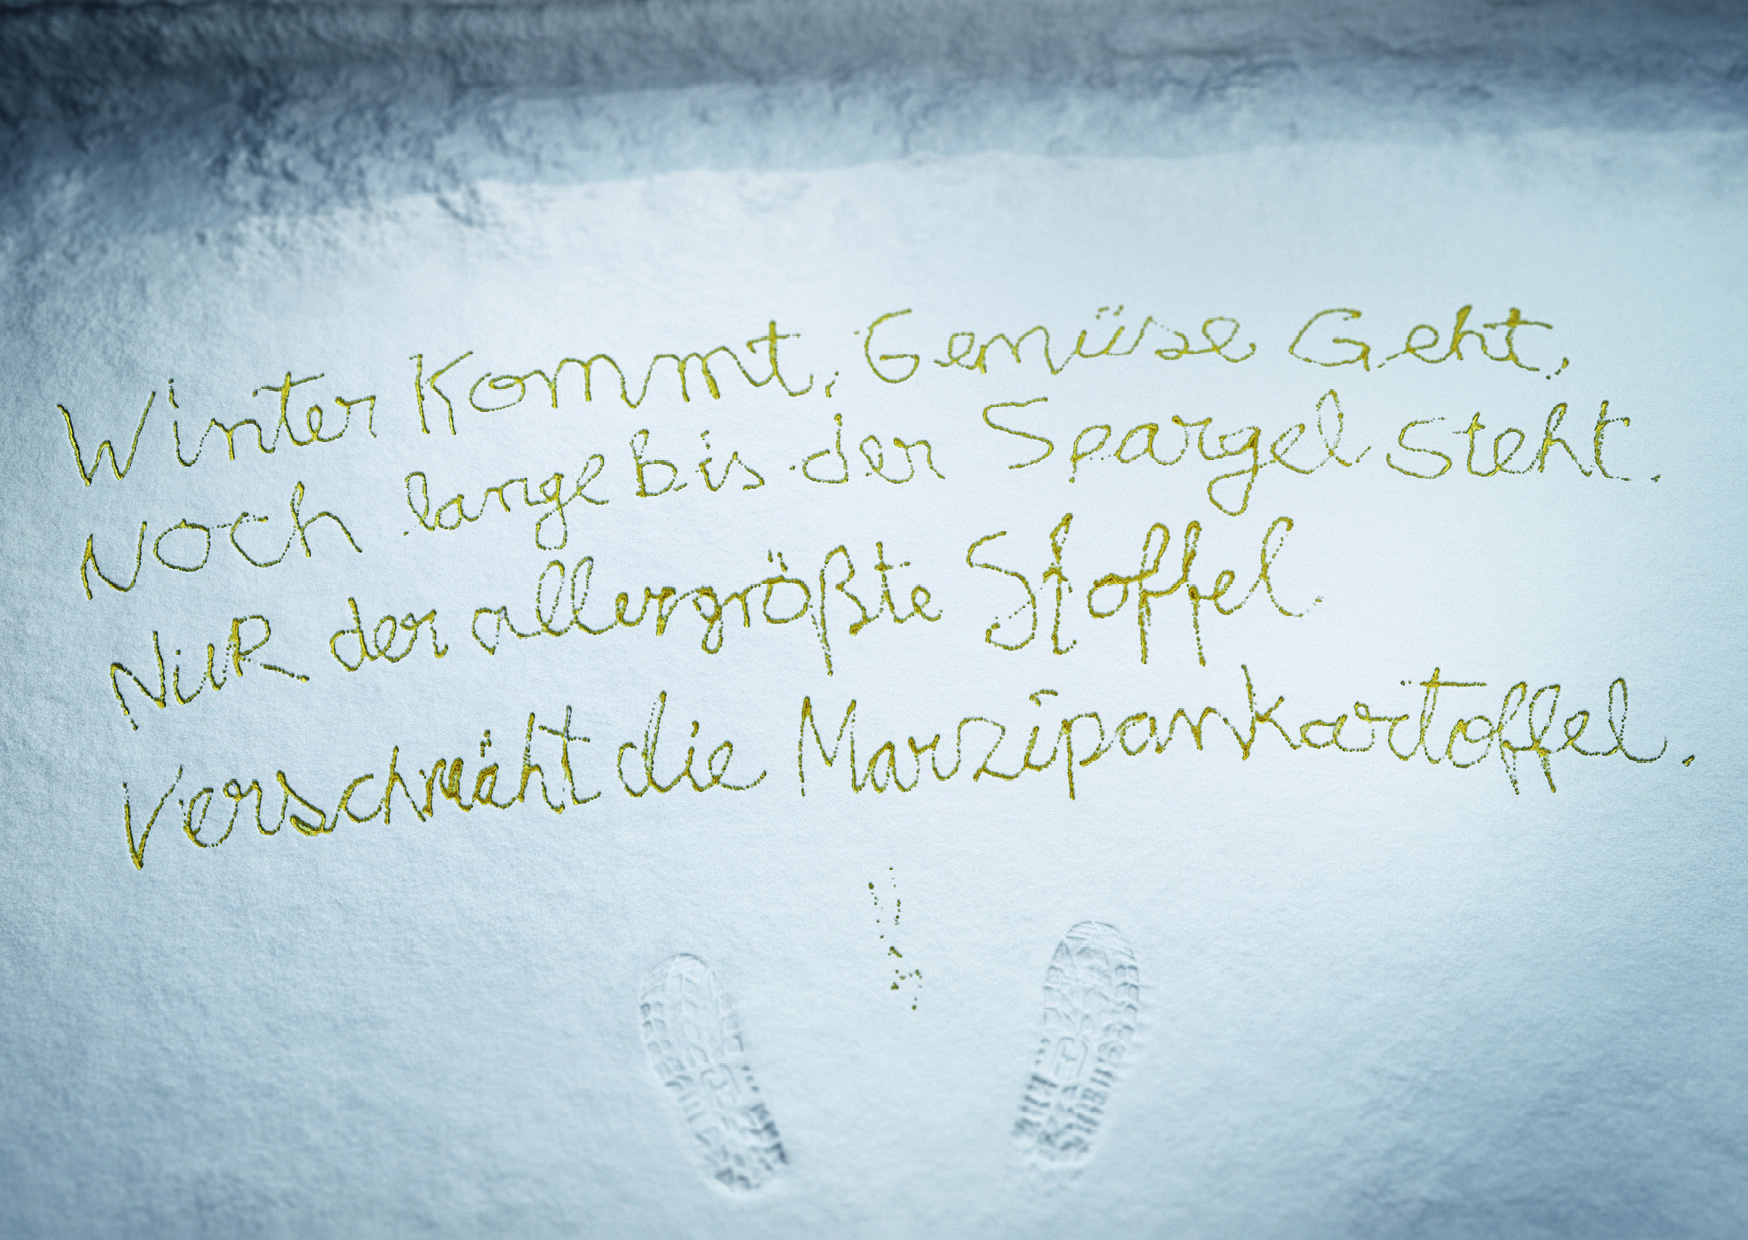 Winter kommt, Gemüse Geht,
Noch lange bis der Spargel steht.
NuR der allergrößte Stoffel
Verschmäht die Marzipankartoffel.